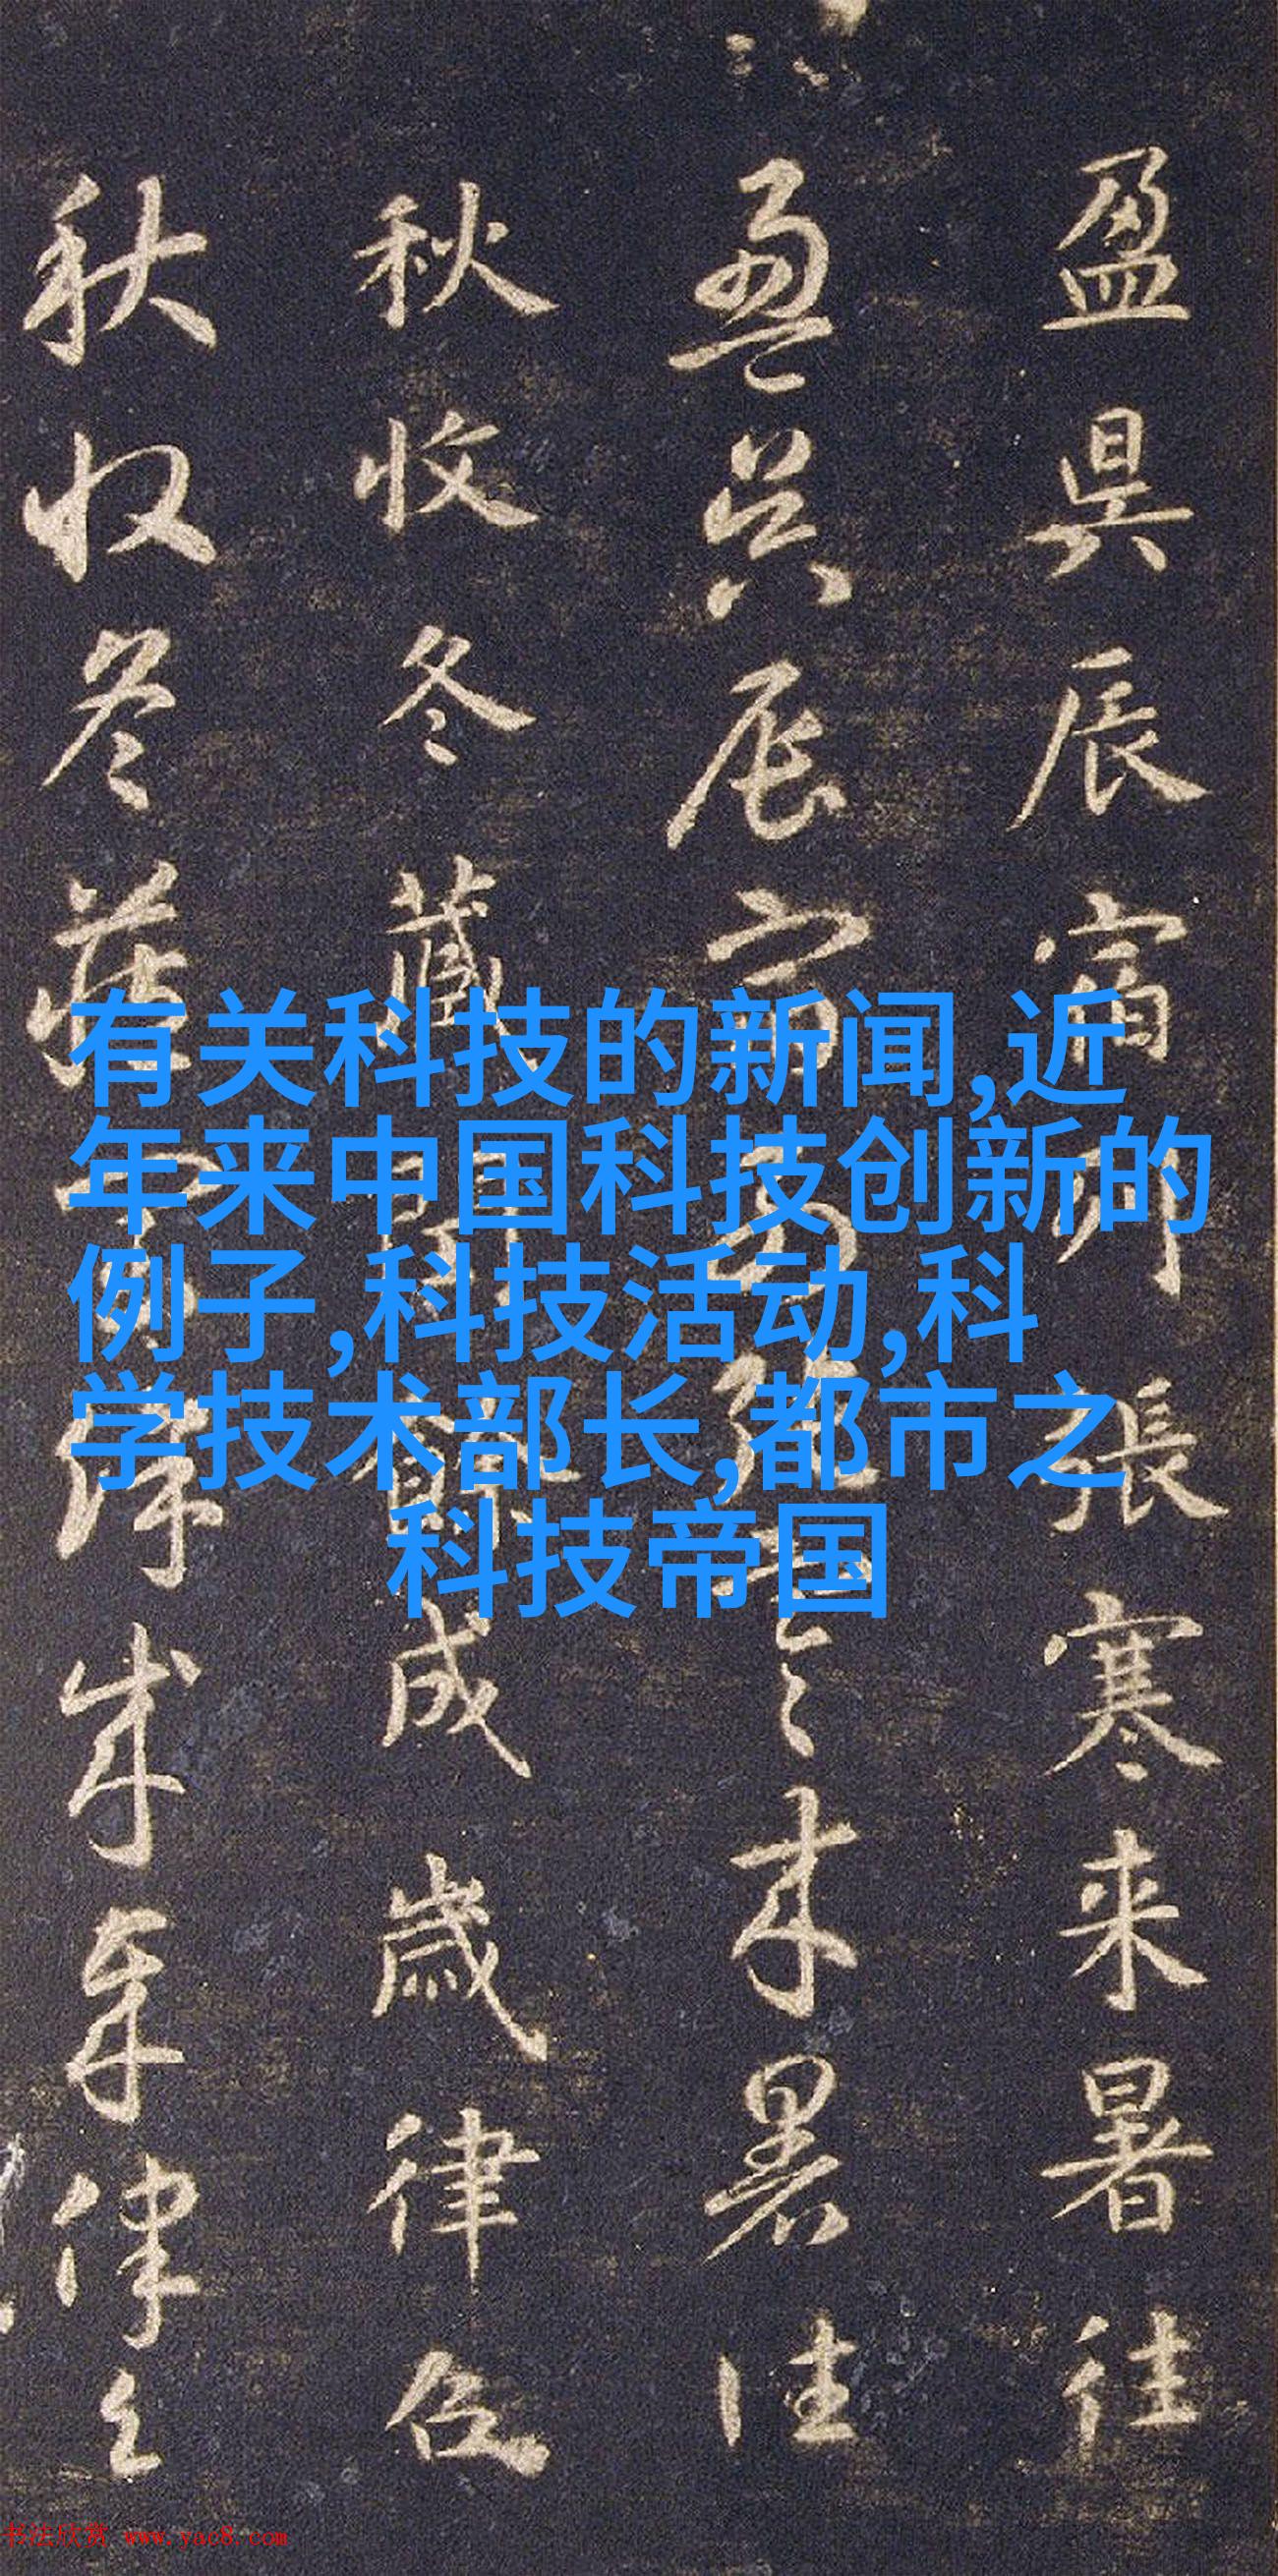 盈昃辰宿列張寒来暑往
盈昃辰宿列張寒来暑往
秋收冬藏閏餘成歲律召
秋收冬藏閏餘成歲律召
有关科技的新闻,近
年来中国科技创新的
例子,科技活动,科
学技术部长,都市之
科技帝国
书法欣赏 www.yac8.com